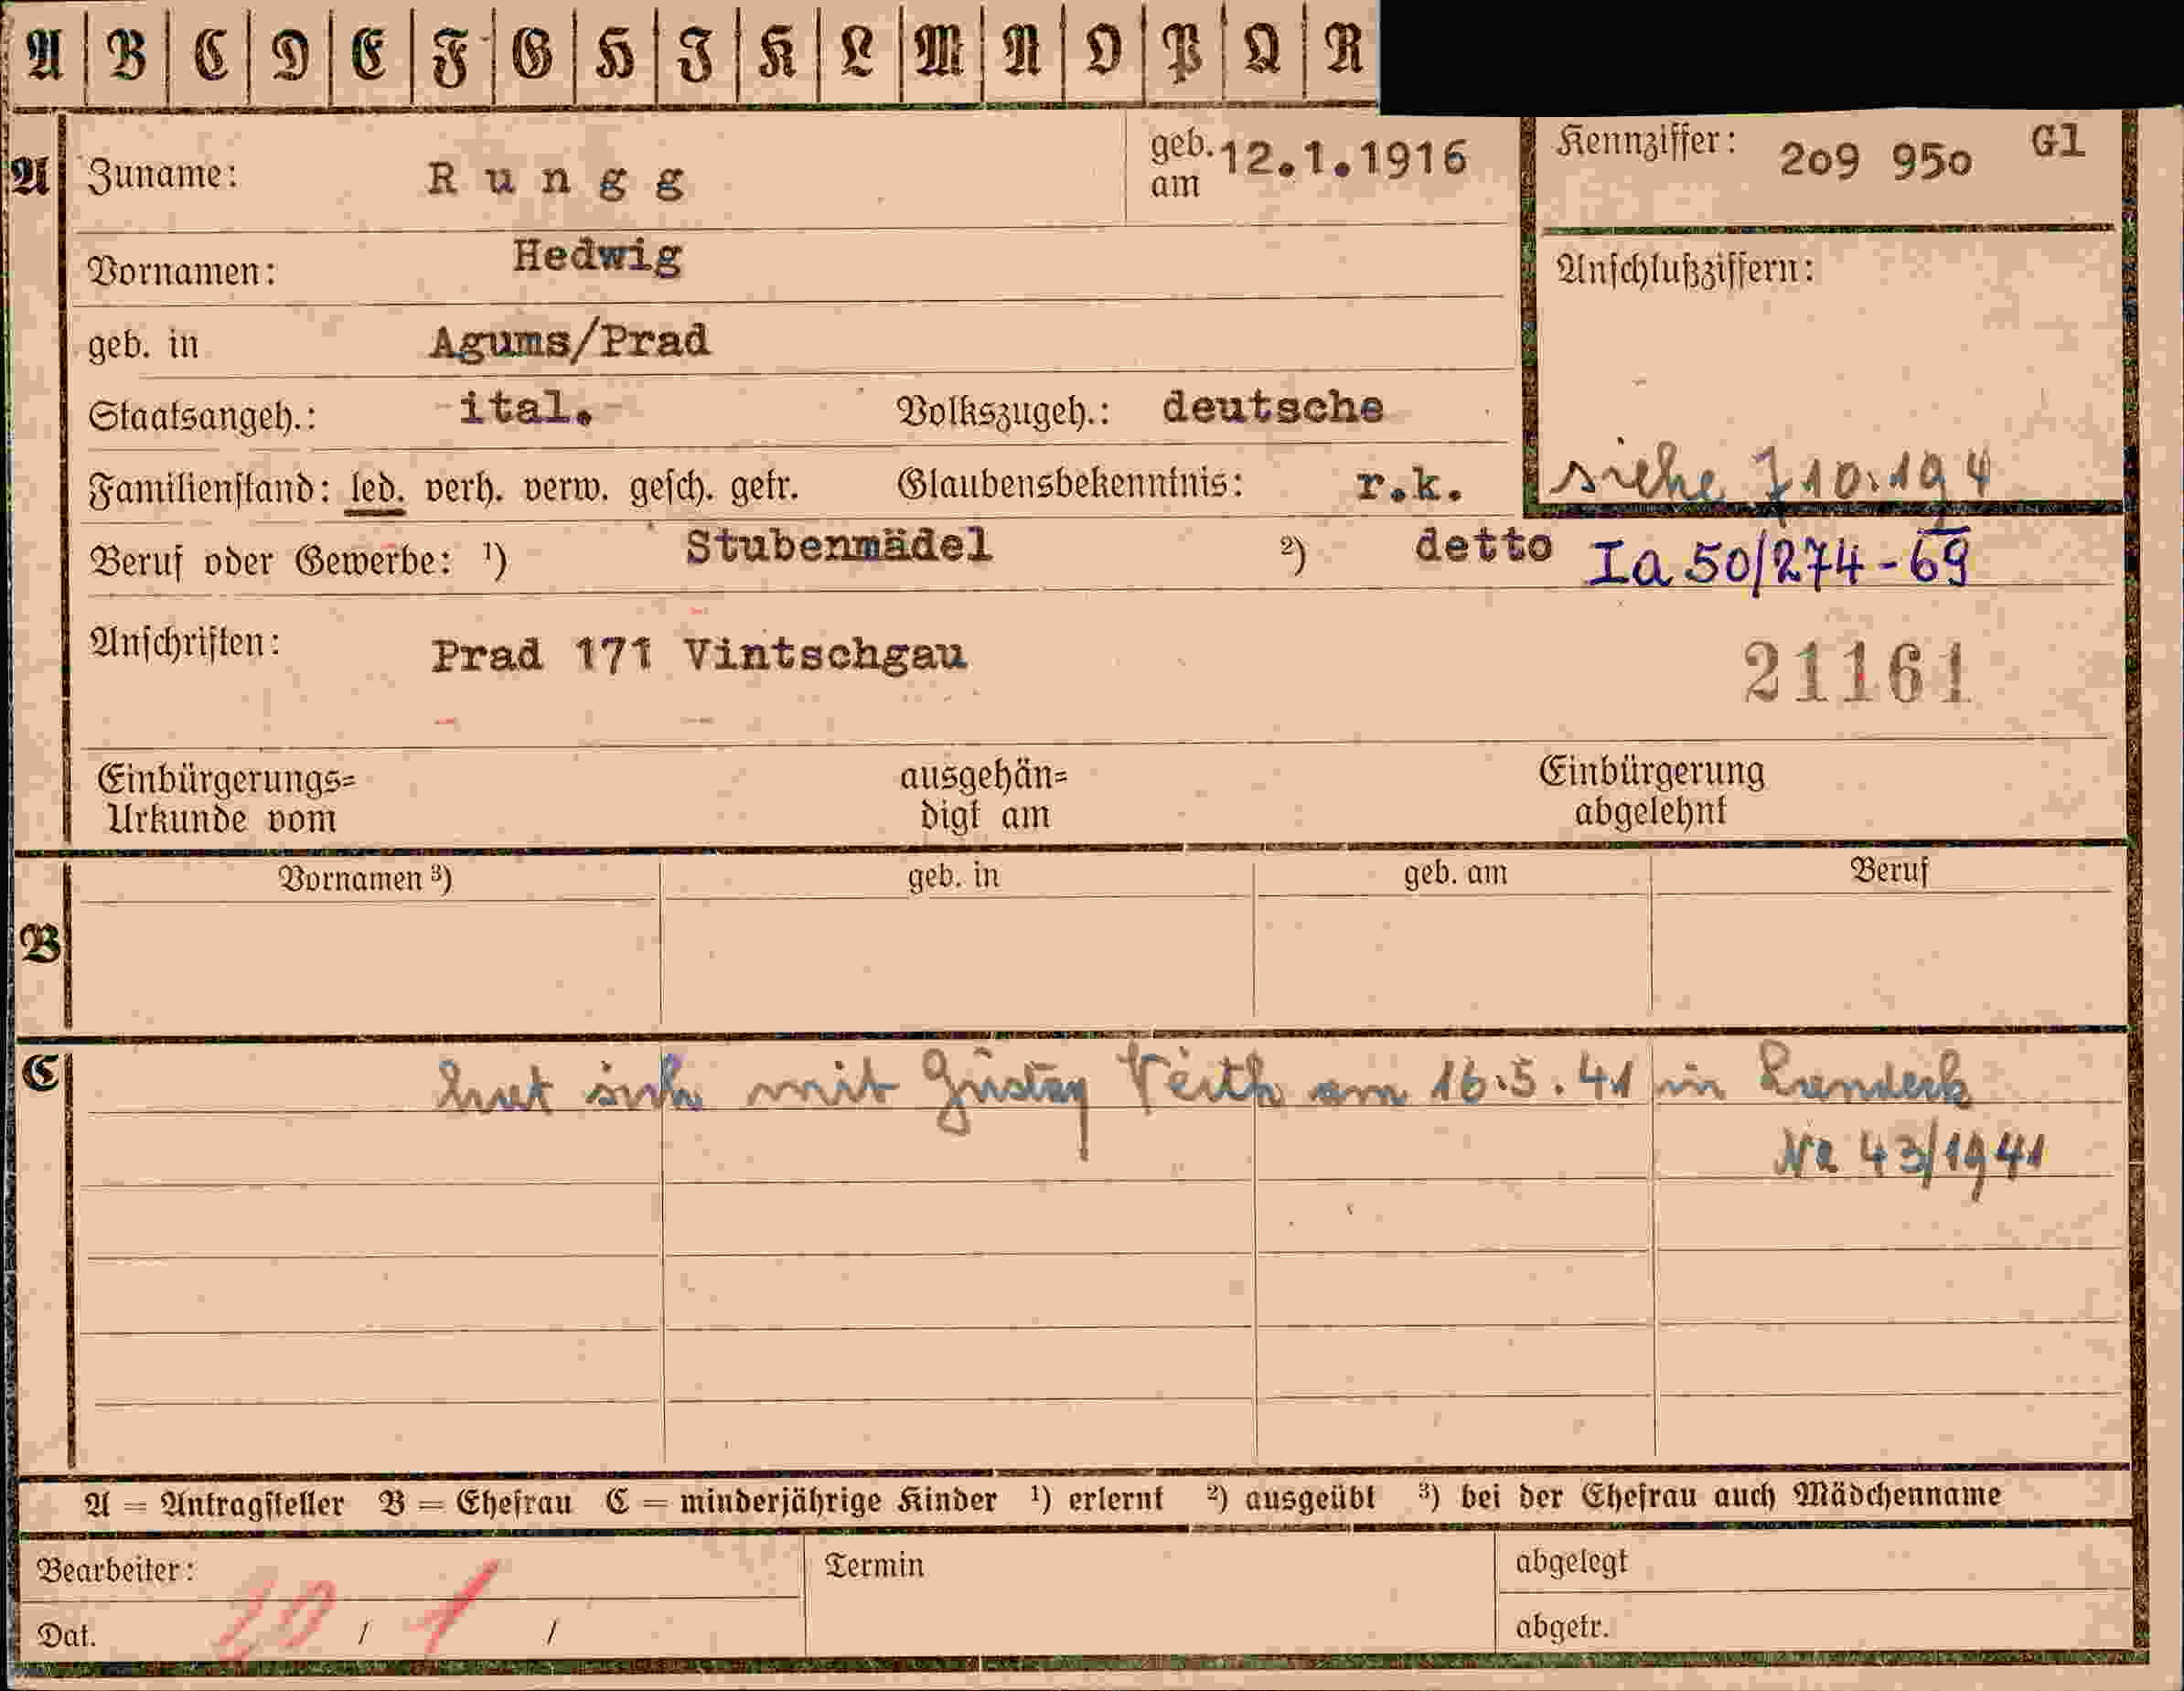 A B C D E F G H I K L M N O P Q R
A Zuname: Rungg geb. am 12.1.1916 Kennziffer: 209 950 Gl
Vornamen: Hedwig Anschlußziffern:
geb. in Agums/Prad
Staatsangeh.: ital. Volkszugeh.: deutsche
Familienstand: led. verh. verw. gesch. getr. Glaubensbekenntnis: r.k. siehe 710.194
Beruf oder Gewerbe: ¹) Stubenmädel ²) detto Ia 50/274-69
Anschriften: Prad 171 Vintschgau 21161
Einbürgerungs= ausgehän= Einbürgerung
Urkunde vom digt am abgelehnt
Vornamen ³) geb. in geb. am Beruf
B
C hat sich mit Gustav Veith am 16.5.41 in Landeck
Nr 43/1941
A = Antragsteller B = Ehefrau C = minderjährige Kinder ¹) erlernt ²) ausgeübt ³) bei der Ehefrau auch Mädchenname
Bearbeiter: Termin abgelegt
Dat. 20 / 1 / abgetr.